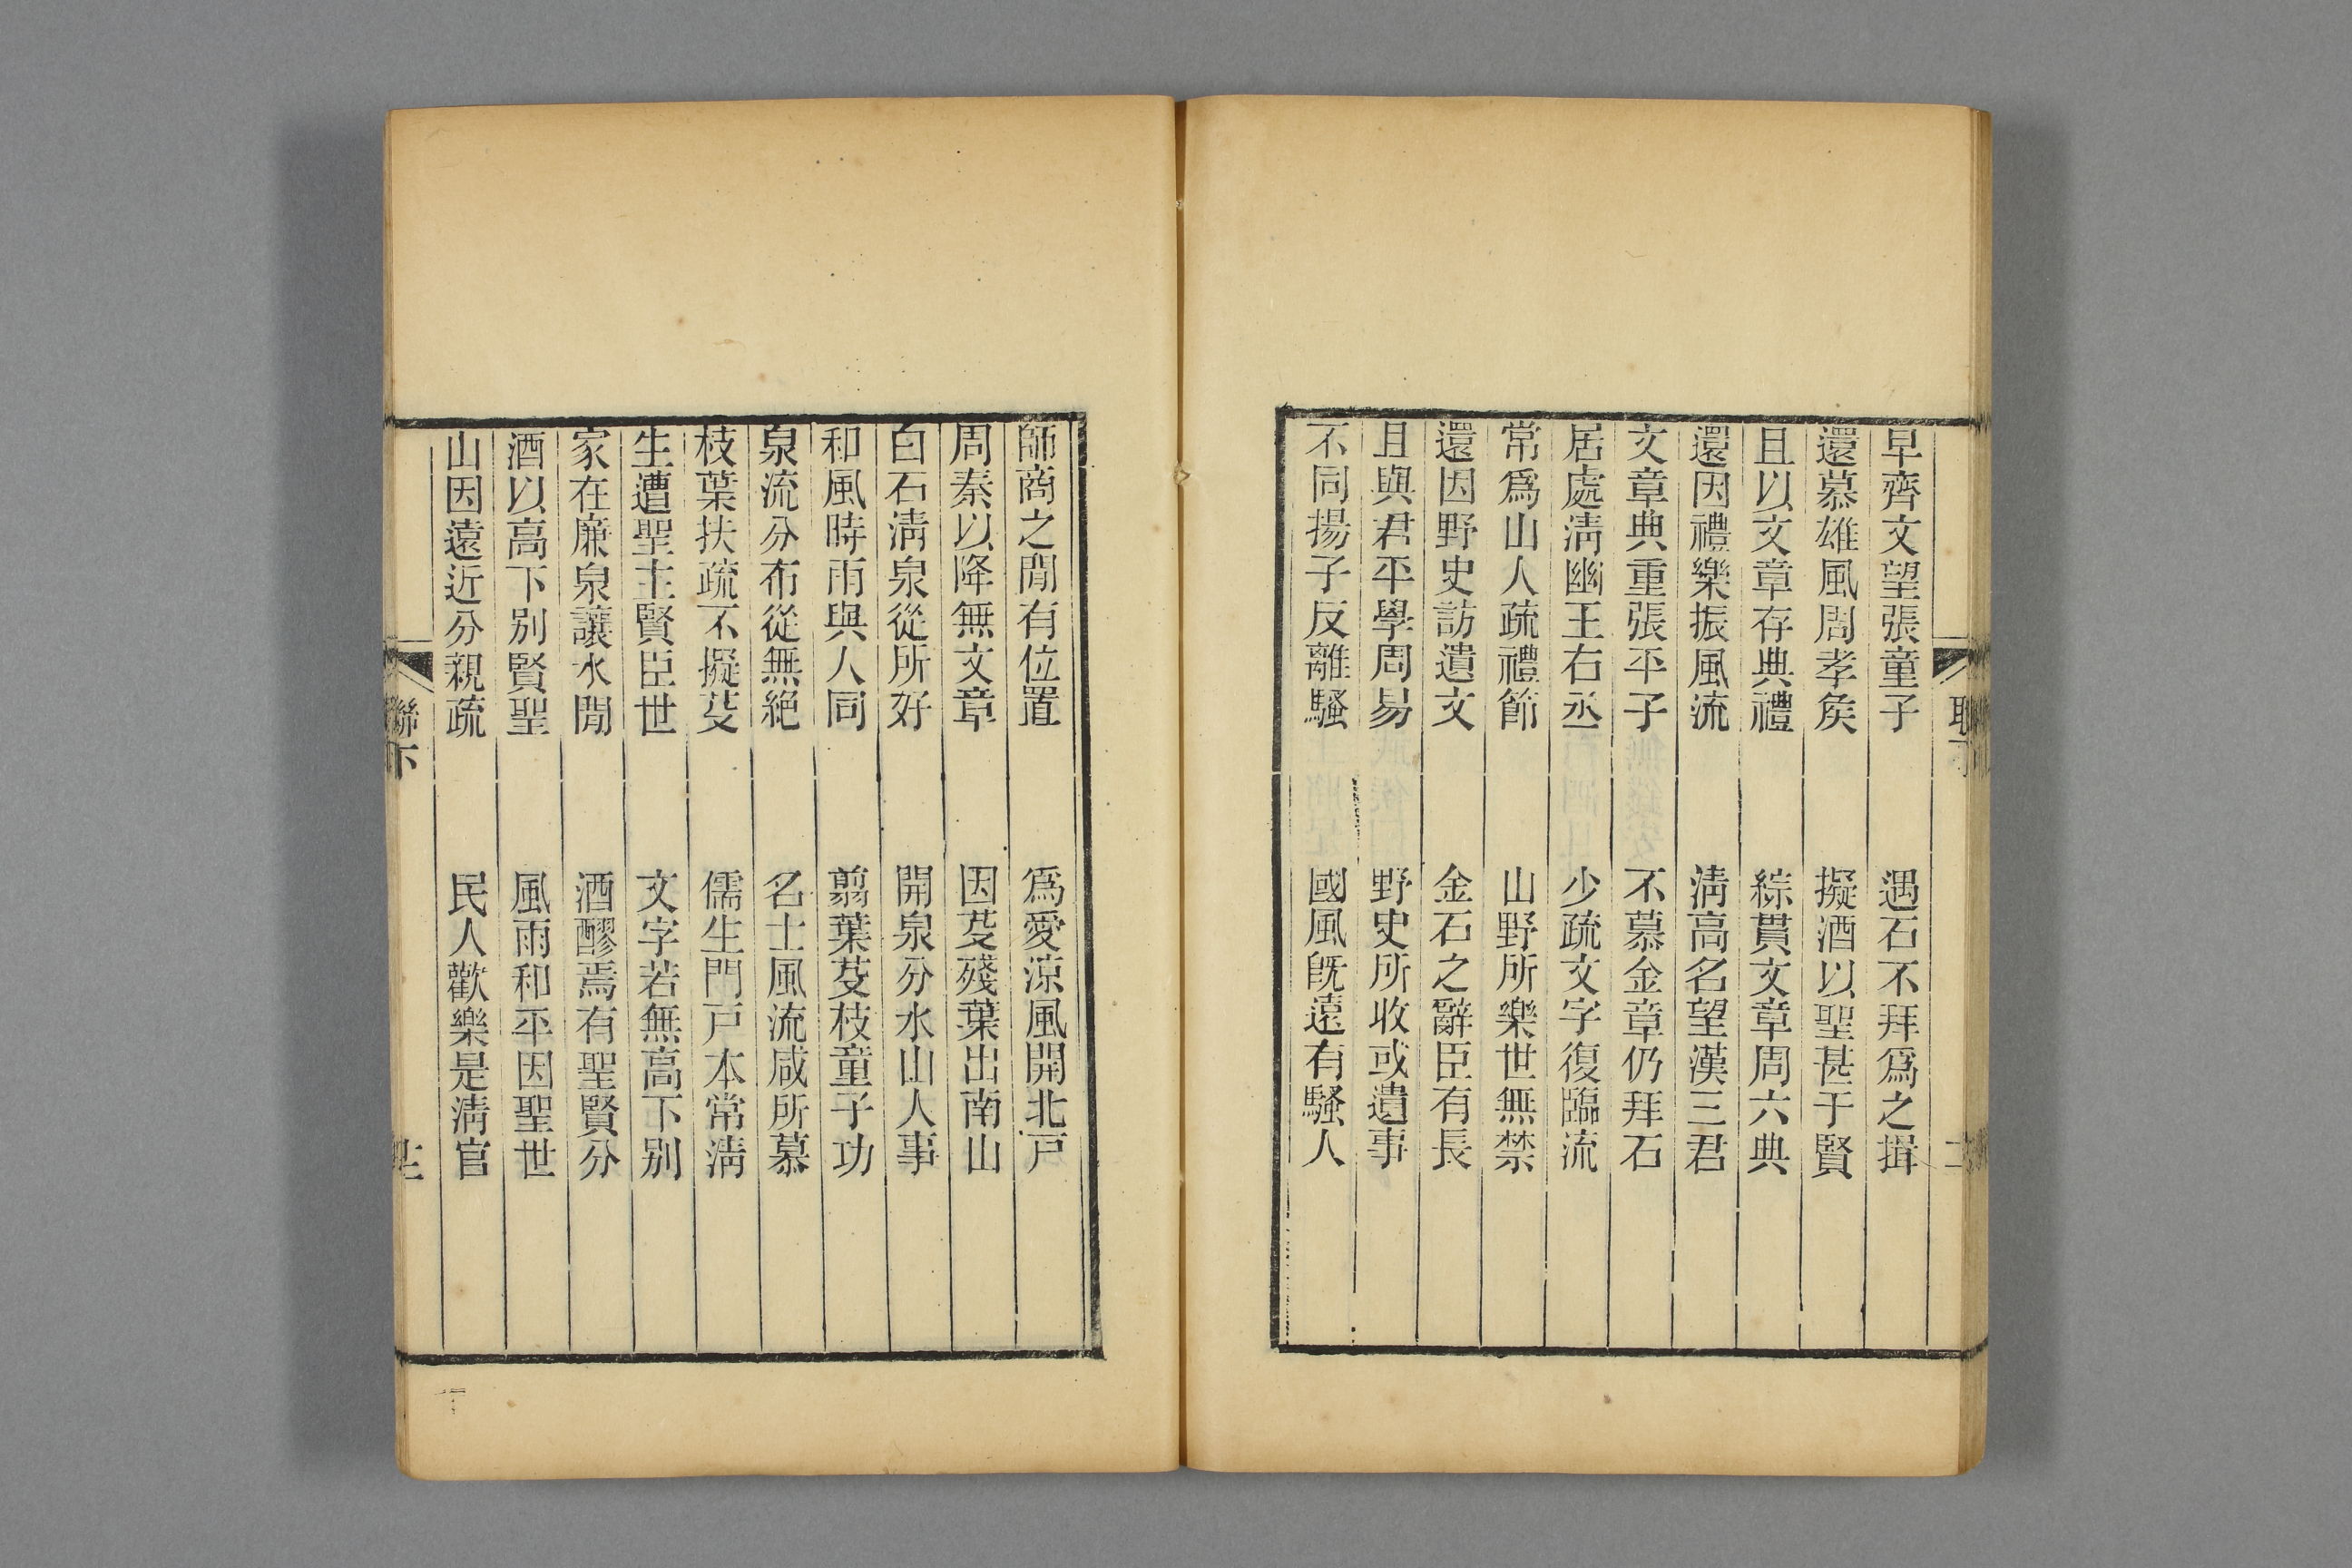 早齊文望張童子　遇石不拜爲之揖
還慕雄風周孝矦　擬酒以聖甚于賢
且以文章存典禮　綜貫文章周六典
還因禮樂振風流　淸高名望漢三君
文章典重張平子　不慕金章仍拜石
居處淸幽王右丞　少疏文字復臨流
常爲山人疏禮節　山野所樂世無禁
還因野史訪遺文　金石之辭臣有長
且與君平學周易　野史所收或遺事
不同揚子反離騷　國風旣遠有騷人
師商之閒有位置　爲愛涼風開北戸
周秦以降無文章　因芟殘葉出南山
白石淸泉從所好　開泉分水山人事
和風時雨與人同　翦葉芟枝童子功
泉流分布從無絕　名士風流咸所慕
枝葉扶疏不擬芟　儒生門戸本常淸
生遭聖主賢臣世　文字若無高下别
家在廉泉讓水閒　酒醪焉有聖賢分
酒以高下别賢聖　風雨和平因聖世
山因遠近分親疏　民人歡樂是淸官
聯下